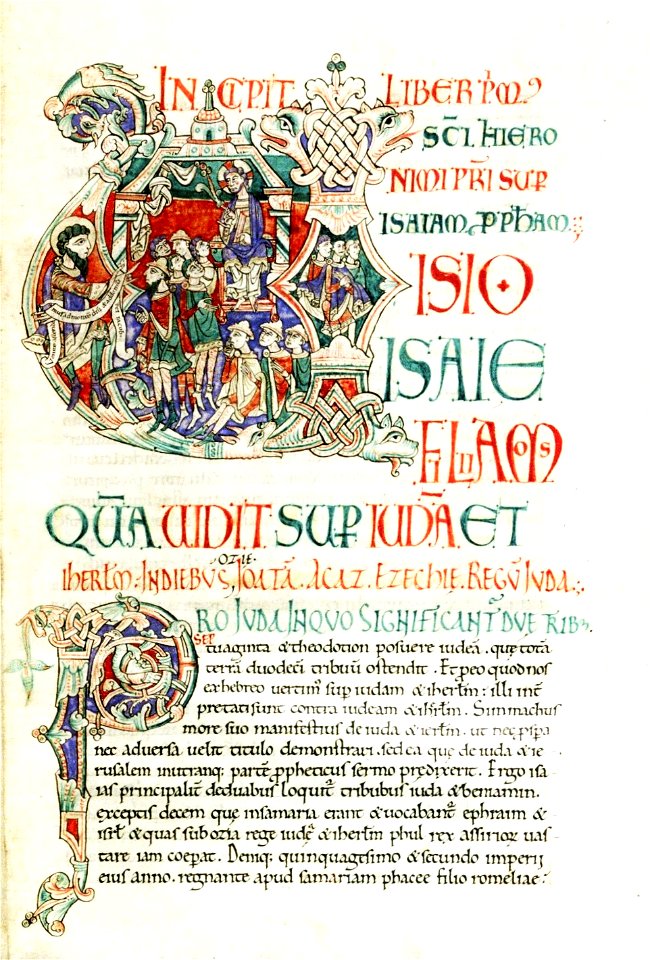 INCIPIT LIBER P̄M̄
SC̄I. HIERO
NIMI PR̄I SUP̱
ISAIAM. P̱PHAM.
VISIO
ISAIE
FILII AMOS
QUĀ UIDIT SUP̱ IUDĀ ET
IHERL̄M. IN DIEBUS, OZIE. IOATĀ. ACAZ. EZECHIE. REGŪ IUDA.
PRO IUDA IN QUO SIGNIFICANT̄ DUĘ TRIBꝫ.
SEP
tuaginta & theodotion posuere iudeā. quę totā
terrā duodecī tribuū ostendit. Et p̱eo quod nos
ex hebreo vertim᷒ sup̱ iudam & iherl̄m: illi int̄
pretati sunt contra iudeam & ihrl̄m. Simmachus
more suo manifestius de iuda & ierl̄m. ut nec p̱sp̱a
nec adversa velit titulo demonstrari. sed ea quę de iuda & ie
rusalem in utranq; partē p̱pheticus sermo prędixerit. Ergo isa
ias principalit̄ de duabus loquit᷑ tribubus iuda & beniamin.
exceptis decem quę in samaria erant & vocabant᷑ ephraim &
isrl̄ & quas sub ozia rege iudę & iherl̄m phul rex assirioꝝ uas
tare iam cœperat. Deniq; quinquagesimo & secundo imperii
eius anno. regnante apud samariam phacee filio romeliae: